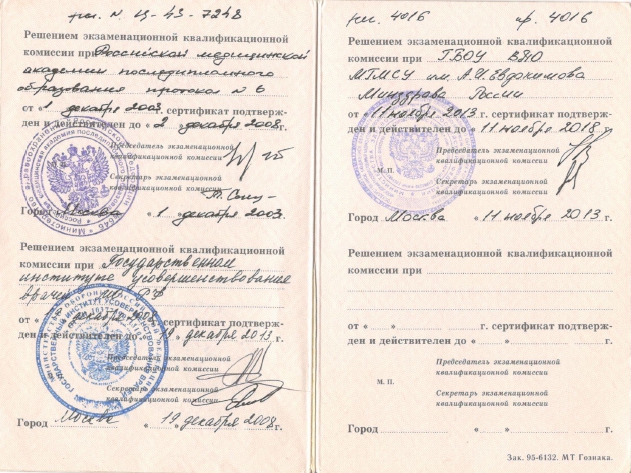 рег. N Ц-43-7248
Решением экзаменационной квалификационной
комиссии при Российской медицинской
академии последипломного
образования протокол N 6
от «1 декабря 2003. сертификат подтверж-
ден и действителен до «2 декабря 2008г.
Председатель экзаменационной
квалификационной комиссии
Секретарь экзаменационной
квалификационной комиссии
Город Москва «1 » декабря 2003.
Решением экзаменационной квалификационной
комиссии при Государственном
институте усовершенствования
врачей МО РФ
от « декабря сертификат подтверж-
ден и действителен до «19 декабря 2013.
Председатель экзаменационной
квалификационной комиссии
Секретарь экзаменационной
квалификационной комиссии
Город Москва «19 декабря г.
4016 4016
Решением экзаменационной квалификационной
комиссии при ГБОУ ВПО
МГМСУ им. А.И. Евдокимова
Минздрава России
от «11 ноября 2013 г. сертификат подтверж-
ден и действителен до «11 ноября 2018 г.
Председатель экзаменационной
квалификационной комиссии
М. П.
Секретарь экзаменационной
квалификационной комиссии
Город Москва «11 ноября 2013 г.
Решением экзаменационной квалификационной
комиссии при
от « » г. сертификат подтверж-
ден и действителен до « » г.
Председатель экзаменационной
квалификационной комиссии
М. П.
Секретарь экзаменационной
квалификационной комиссии
Город « » г.
Зак. 95-6132. МТ Гознака.